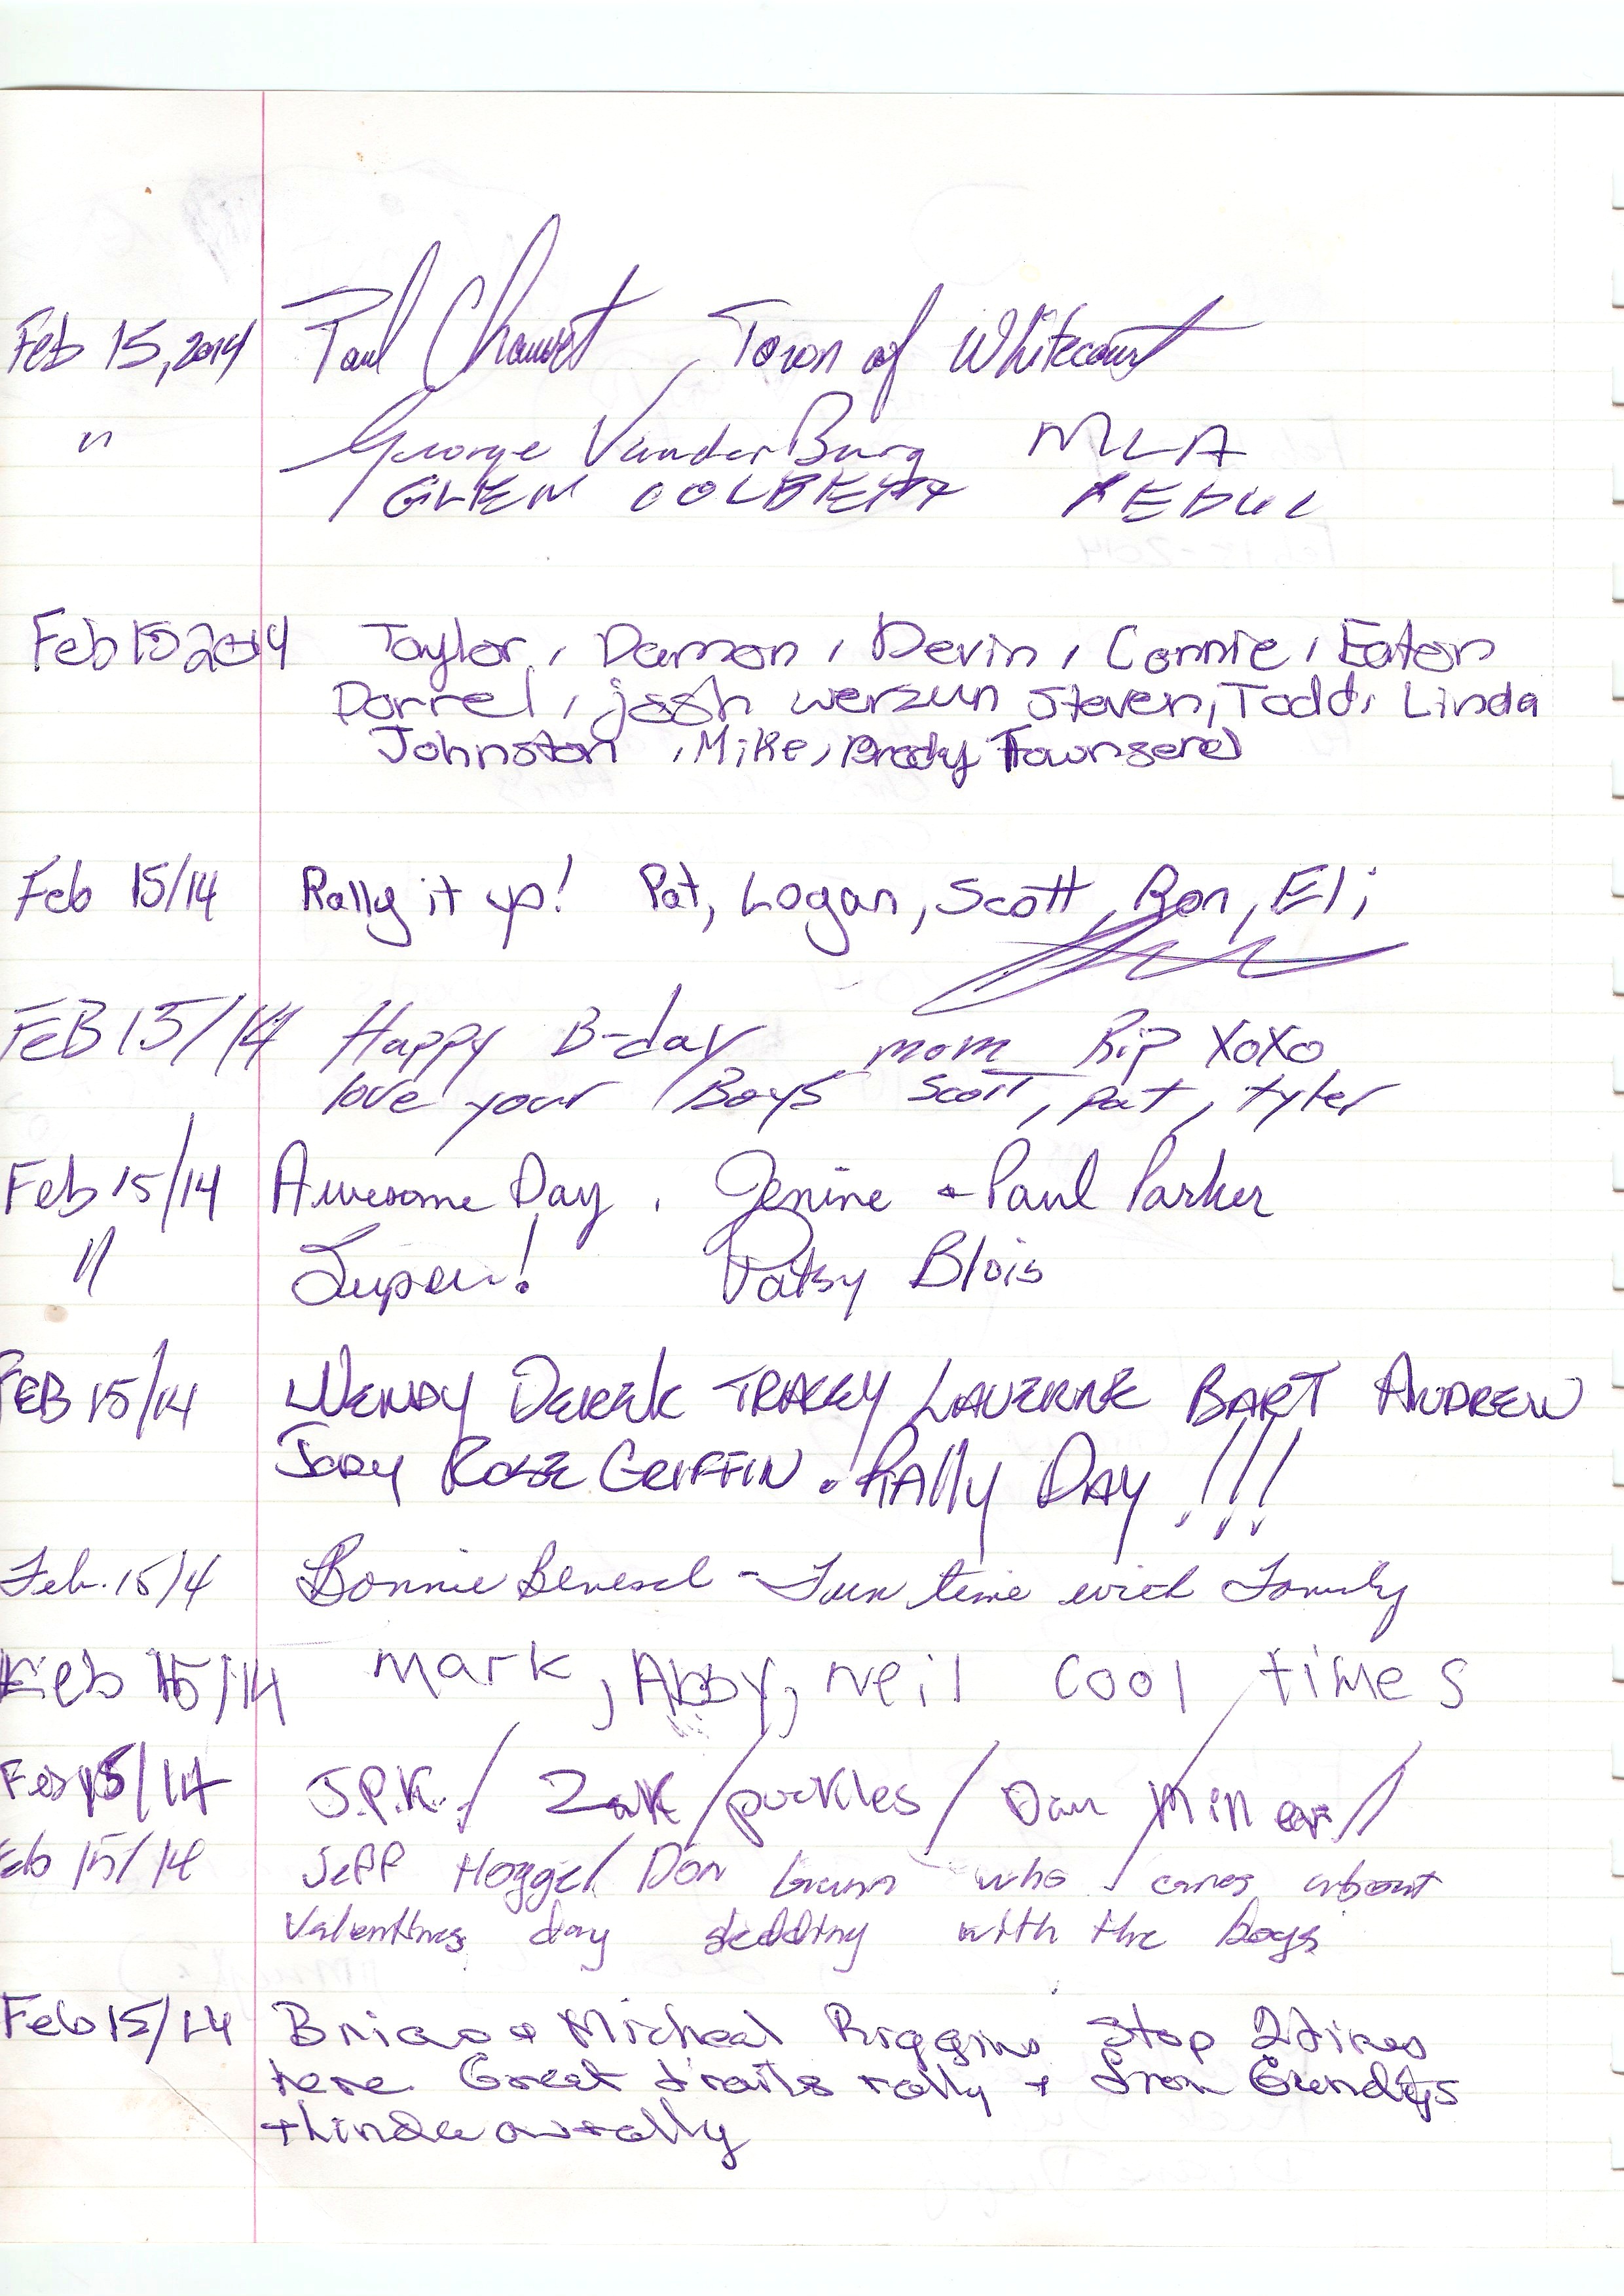 Feb 15, 2014 Paul Chauvet Town of Whitecourt
" George VanderBurg MLA
GLEN
Feb 15 2014 Taylor, Damon, Devin, Connie, Eaton
Darrel, josh werzun Steven, Todd, Linda
Johnston, Mike, Brady Townsend
Feb 15/14 Rally it up! Pat, Logan, Scott, Ron, Eli
FEB 15/14 Happy B-day mom Rip XOXO
love your Boys Scott, pat, tyler
Feb 15/14 Awesome Day. Jenine + Paul Parker
" Super! Patsy Blois
FEB 15/14 WENDY DEREK TRACEY LAVERNE BART ANDREW
JODY ROSE GRIFFIN. RAlly DAY!!!
Feb. 15/4 Bonnie - Fun time with Family
Feb 15/14 Mark, Abby, Neil cool times
Feb 15/14 J.P.K. / Zak / puckles / Dan
Feb 15/14 Jeff Don who cares about
Valentines day sledding with the boys
Feb 15/14 Brian + Micheal Riggins Stop 2 times
here Great trails rally + from
+ Linda